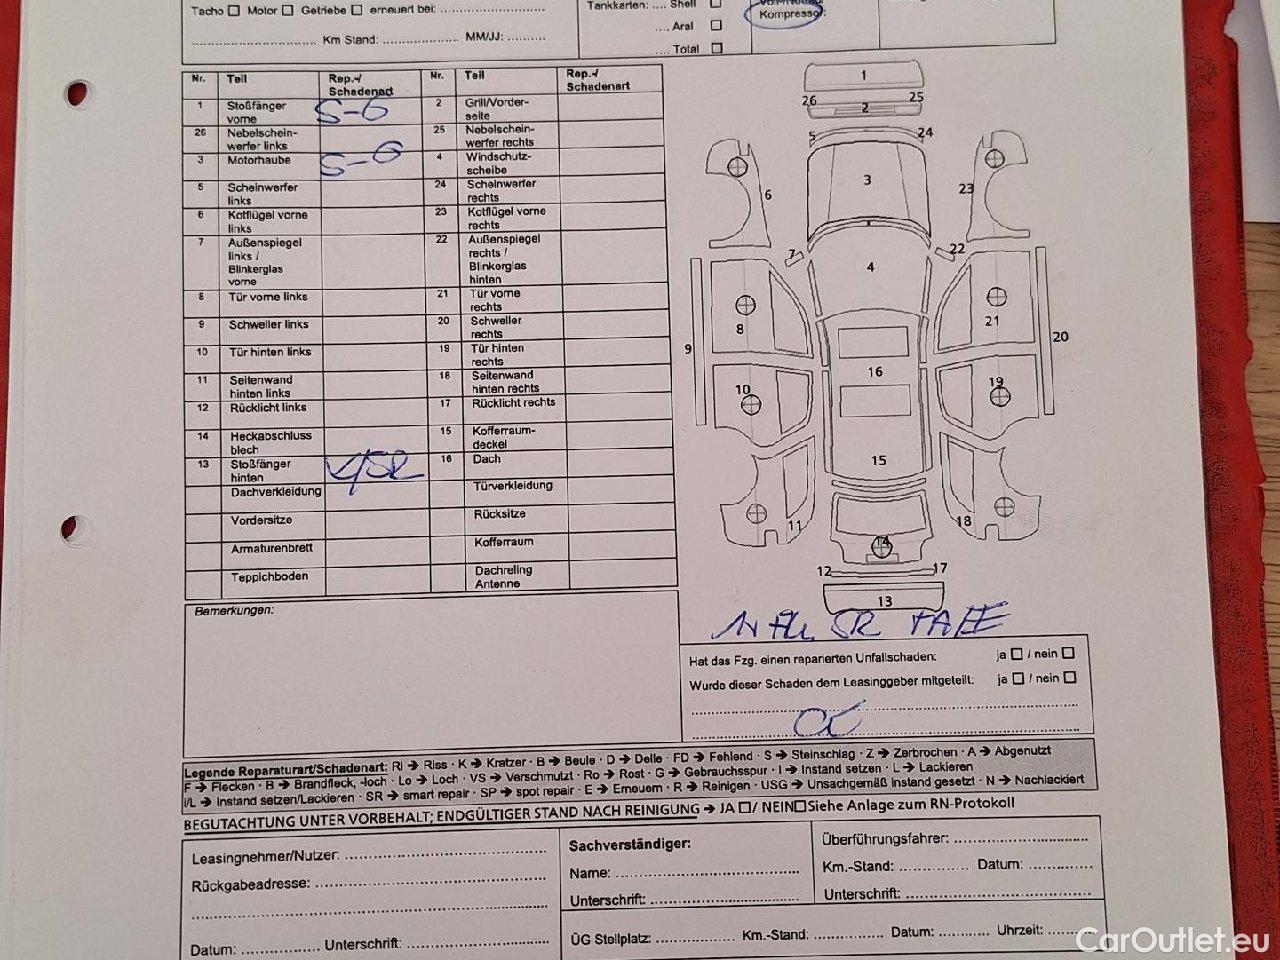 Tacho Motor Getriebe erneuert bei:
Km Stand: MM/JJ:
Tankkarten: Shell
Aral
Total
Kompressor.
Nr. Teil Rep.-/ Schadenart Nr. Teil Rep.-/ Schadenart
1 Stoßfänger vorne S-G 2 Grill/Vorder-seite
26 Nebelschein-werfer links 25 Nebelschein-werfer rechts
3 Motorhaube S-G 4 Windschutz-scheibe
5 Scheinwerfer links 24 Scheinwerfer rechts
6 Kotflügel vorne links 23 Kotflügel vorne rechts
7 Außenspiegel links / Blinkerglas vorne 22 Außenspiegel rechts / Blinkerglas hinten
8 Tür vorne links 21 Tür vorne rechts
9 Schweller links 20 Schweller rechts
10 Tür hinten links 19 Tür hinten rechts
11 Seitenwand hinten links 18 Seitenwand hinten rechts
12 Rücklicht links 17 Rücklicht rechts
14 Heckabschluss blech 15 Kofferraum-deckel
13 Stoßfänger hinten 16 Dach
Dachverkleidung Türverkleidung
Vordersitze Rücksitze
Armaturenbrett Kofferraum
Teppichboden Dachreling Antenne
Bemerkungen:
1
26 2 25
5 24
3
6 23
7 22
4
8 21
9 20
16
10 19
15
11 18
14
12 17
13
SR
Hat das Fzg. einen reparierten Unfallschaden: ja / nein
Wurde dieser Schaden dem Leasinggeber mitgeteilt: ja / nein
Legende Reparaturart/Schadenart: RI → Riss · K → Kratzer · B → Beule · D → Delle · FD → Fehlend · S → Steinschlag · Z → Zerbrochen · A → Abgenutzt
F → Flecken · B → Brandfleck, -loch · Lo → Loch · VS → Verschmutzt · Ro → Rost · G → Gebrauchsspur · I → Instand setzen · L → Lackieren
I/L → Instand setzen/Lackieren · SR → smart repair · SP → spot repair · E → Erneuern · R → Reinigen · USG → Unsachgemäß Instand gesetzt · N → Nachlackiert
BEGUTACHTUNG UNTER VORBEHALT; ENDGÜLTIGER STAND NACH REINIGUNG → JA / NEIN Siehe Anlage zum RN-Protokoll
Leasingnehmer/Nutzer:
Rückgabeadresse:
Datum: Unterschrift:
Sachverständiger:
Name:
Unterschrift:
Überführungsfahrer:
Km.-Stand: Datum:
Unterschrift:
ÜG Stellplatz: Km.-Stand: Datum: Uhrzeit:
CarOutlet.eu